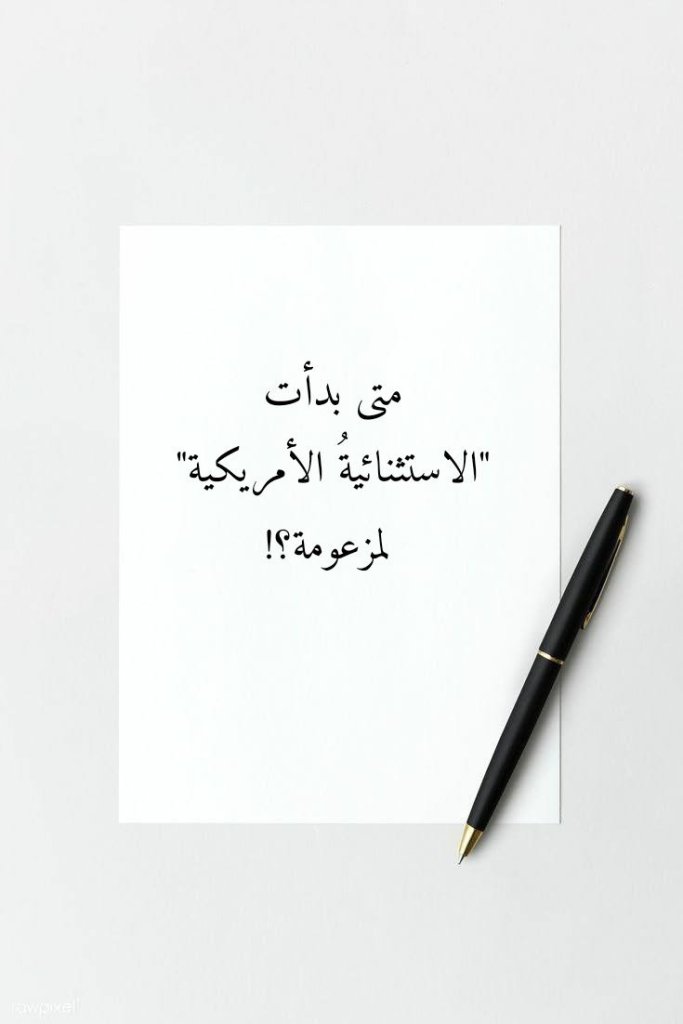 متى بدأت
"الاستثنائيةُ الأمريكية"
لمزعومة؟!
rawpixel